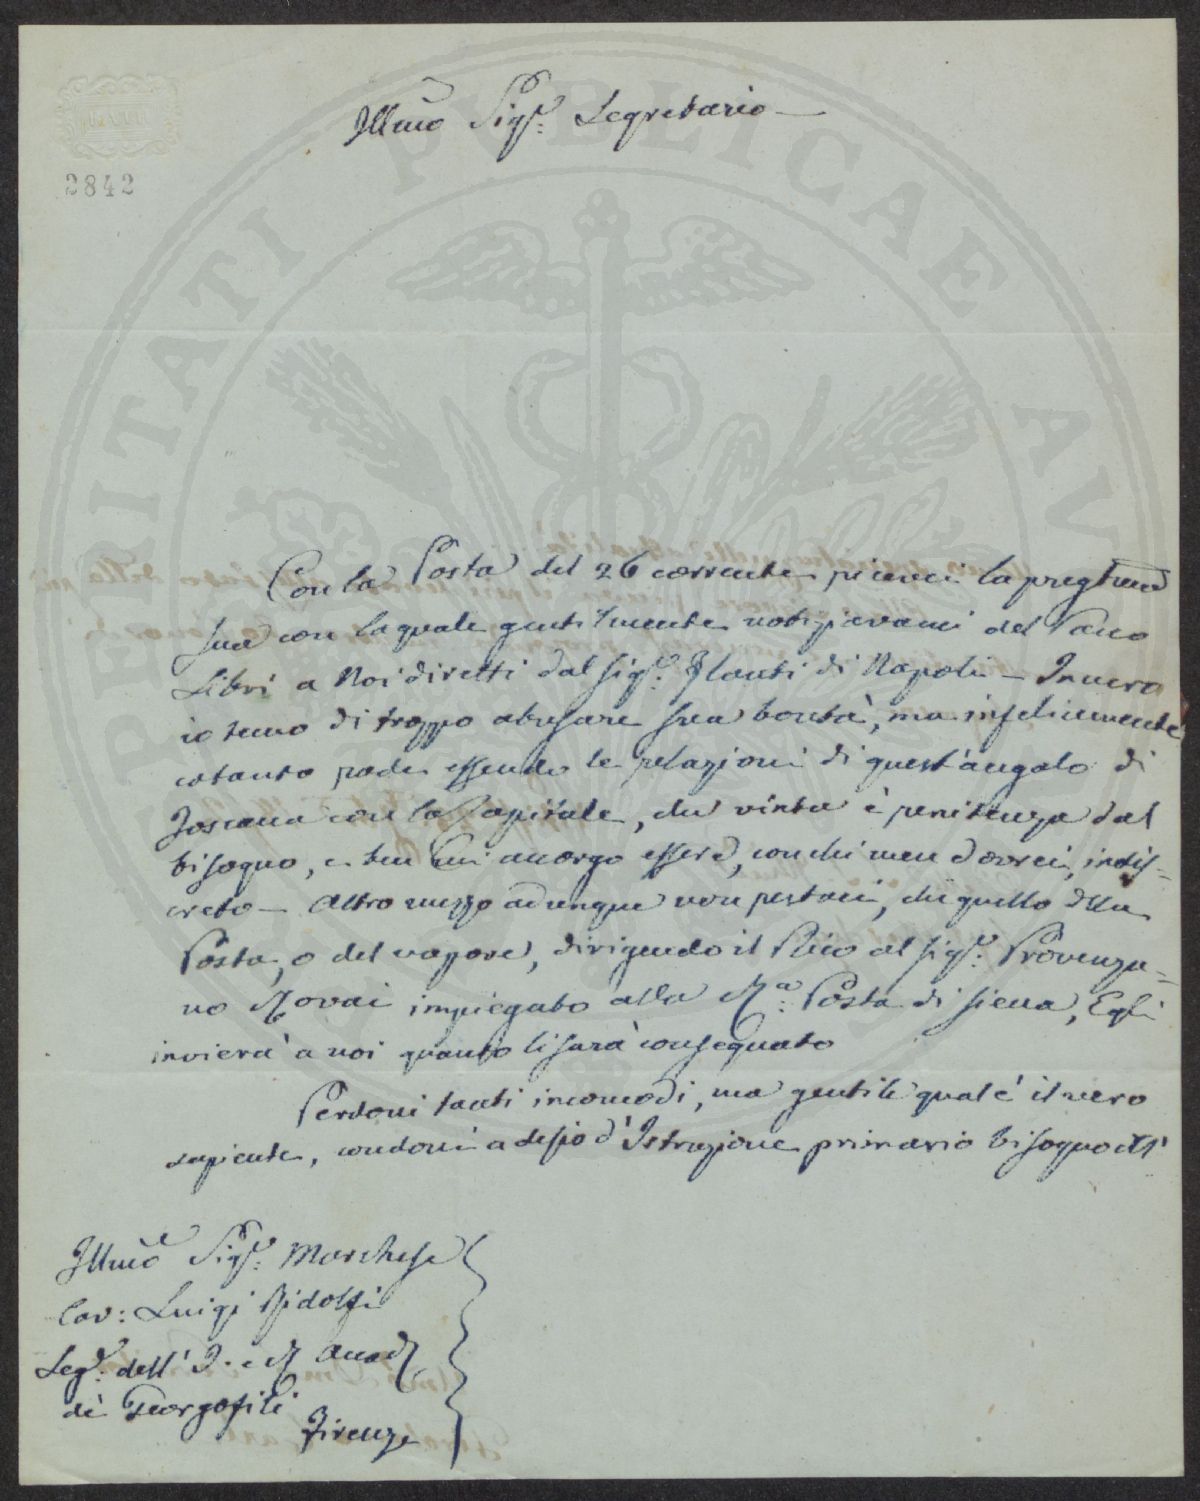 2842
Illmo Sigr. Segretario —
Con la Posta del 26 corrente ricevei la pregtma
sua con la quale gentilmente notiziavami del Pacco
Libri a Noi diretti dal Sigr. Flauti di Napoli — In vero
io temo di troppo abusare sua bontà, ma infelicemente
cotanto rade essendo le relazioni di quest'angolo di
Toscana con la Capitale, che vinta è renitenza dal
bisogno, e ben mi accorgo essere, con chi men dovrei, indis=
creto — Altro mezzo adunque non restaci, che quello della
Posta, o del vapore, dirigendo il Plico al sigr. Provenza=
no Rovai impiegato alla Ra. Posta di Siena, Egli
invierà a noi quanto li sarà consegnato
Perdoni tanti incomodi, ma gentile qual'è il vero
sapiente, condoni a desio d'Istruzione primario bisogno dell'
Illmo Sigr. Marchese
Cav: Luigi Ridolfi
Segr. dell' I. e R Accad.
dè Georgofili
Firenze
PROSPERITATI PVBLICAE AV